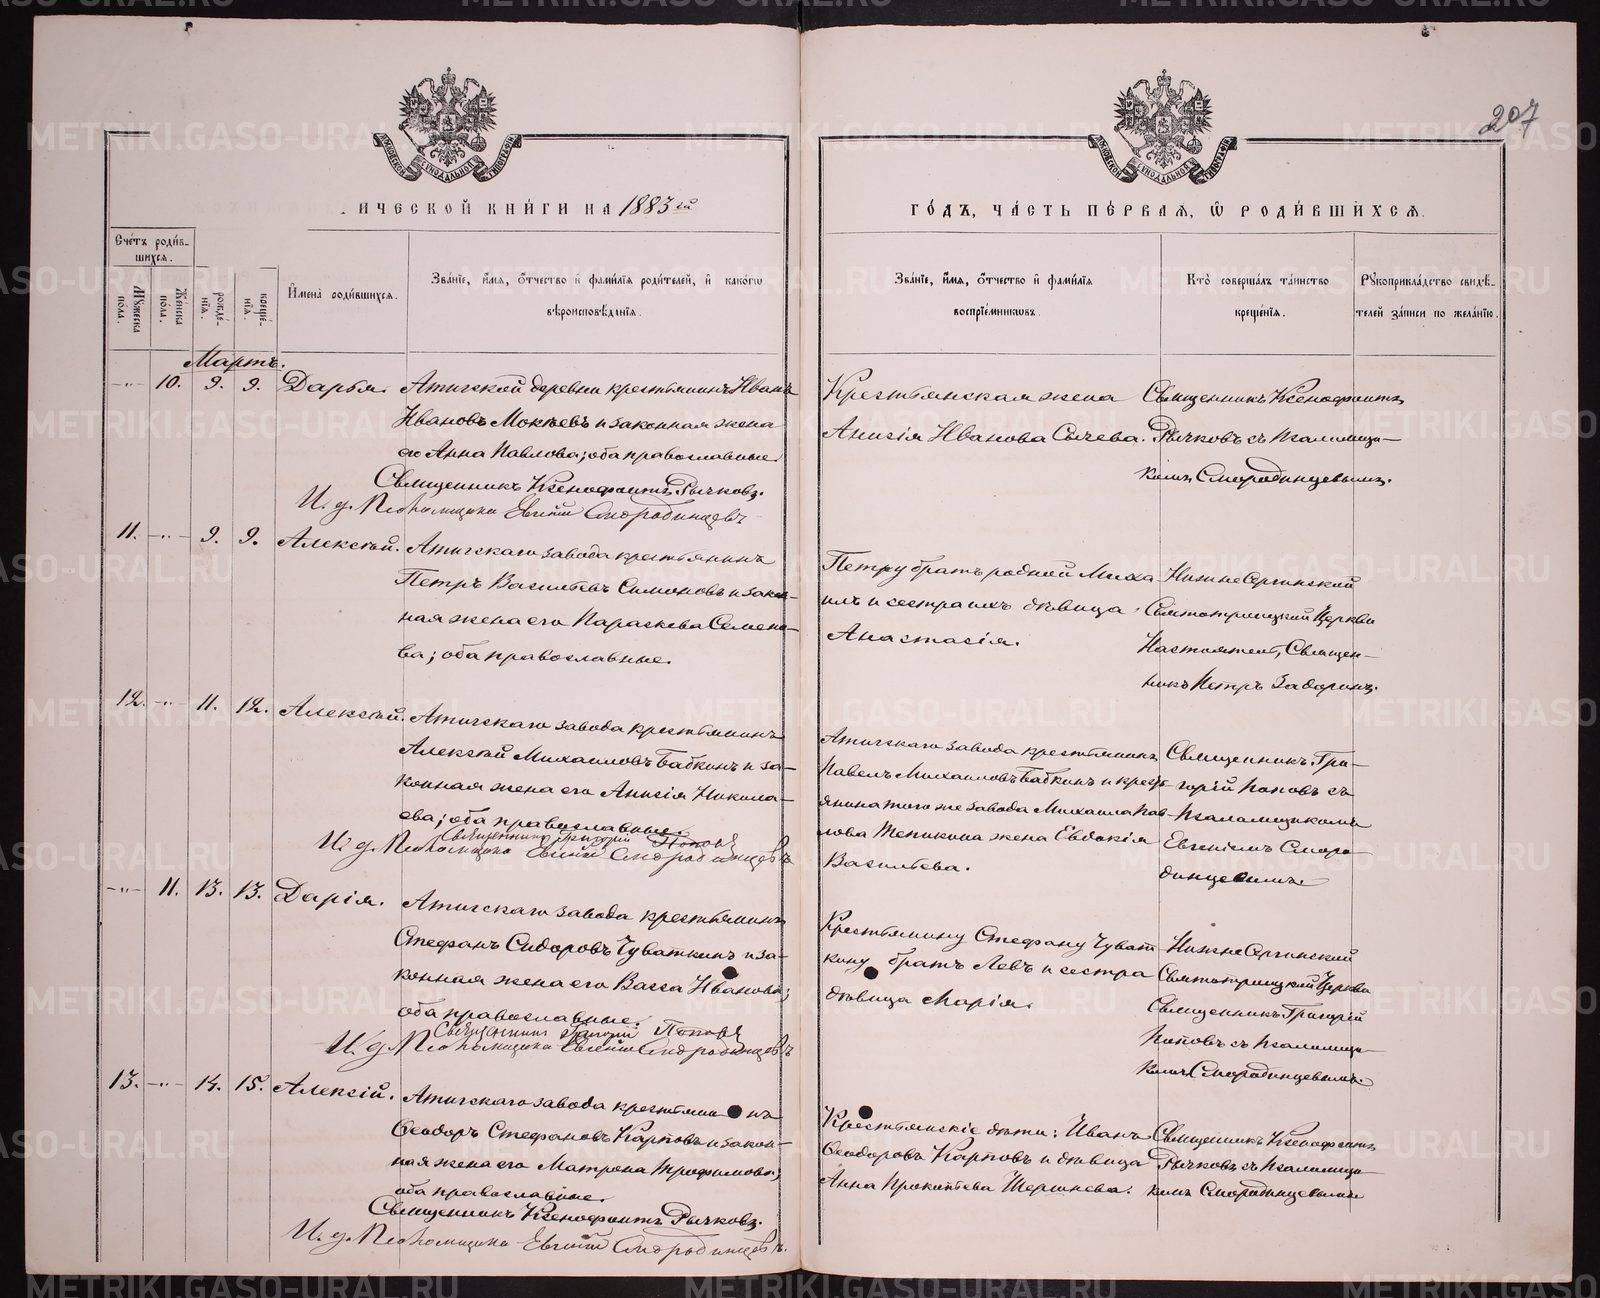 207
ИЧЕСКОЙ КНИГИ НА 1883ій
ГОДЪ, ЧАСТЬ ПЕРВАЯ, Ѡ РОДИВШИХСЯ.
Счетъ родив-
шихся.
Мужеска пола.
Женска пола.
рожде-
нія.
креще-
нія.
Имена родившихся.
Званіе, имя, отчество и фамилія родителей, и какогѡ
вѣроисповѣданія.
Званіе, имя, отчество и фамилія
воспріемникѡвъ.
Кто совершалъ таинство
крещенія.
Рукоприкладство свидѣ-
телей записи по желанію.
Мартъ.
-"- 10. 9. 9. Дарья.
Атигской деревни крестьянинъ Иванъ
Ивановъ Мокѣевъ и законная жена
его Анна Павлова; оба православные.
Священникъ Ксенофонтъ Рычковъ.
И. д. Псаломщика Евгеній Смородинцевъ
Крестьянская жена
Анисія Иванова Сычева.
Священникъ Ксенофонтъ
Рычковъ съ псаломщи-
комъ Смородинцевымъ.
11. -"- 9. 9. Алексѣй.
Атигскаго завода крестьянинъ
Петръ Васильевъ Симоновъ и закон-
ная жена его Параскева Семено-
ва; оба православные.
Петру братъ родной Миха-
илъ и сестра ихъ дѣвица
Анастасія.
НижнеСергинский
Святотроицкий Церкви
Настоятель, Священ-
никъ Петръ Задоринъ.
12. -"- 11. 12. Алексѣй.
Атигскаго завода крестьянинъ
Алексѣй Михаиловъ Бабкинъ и за-
конная жена его Анисія Никола-
ева; оба православные.
Священникъ Григорій Поповъ
И. д. Псаломщика Евгеній Смородинцевъ
Атигскаго завода крестьянинъ
Павелъ Михаиловъ Бабкинъ и крест-
янина того же завода Михаила Пав-
лова Тепикина жена Евдокія
Васильева.
Священникъ Гри-
горій Поповъ съ
псаломщикомъ
Евгеніемъ Сморо-
динцевымъ
-"- 11. 13. 13. Дарія.
Атигскаго завода крестьянинъ
Стефанъ Сидоровъ Чуваткинъ и за-
конная жена его Васса Иванова;
оба православные.
Священникъ Григорій Поповъ
И. д. Псаломщика Евгеній Смородинцевъ
Крестьянину Стефану Чуват-
кину братъ Левъ и сестра
дѣвица Марія.
НижнеСергинский
Святотроицкий Церкви
Священникъ Григорій
Поповъ съ псаломщи-
комъ Смородинцевымъ.
13. -"- 14. 15. Алексій.
Атигскаго завода крестьянинъ
Ѳеодоръ Стефановъ Карповъ и закон-
ная жена его Матрона Трофимова;
оба православные.
Священникъ Ксенофонтъ Рычковъ.
И. д. Псаломщика Евгеній Смородинцевъ.
Крестьянскіе дѣти: Иванъ
Ѳеодоровъ Карповъ и дѣвица
Анна Прокопьева
Священникъ Ксенофонтъ
Рычковъ съ псаломщи-
комъ Смородинцевымъ
METRIKI.GASO-URAL.RU